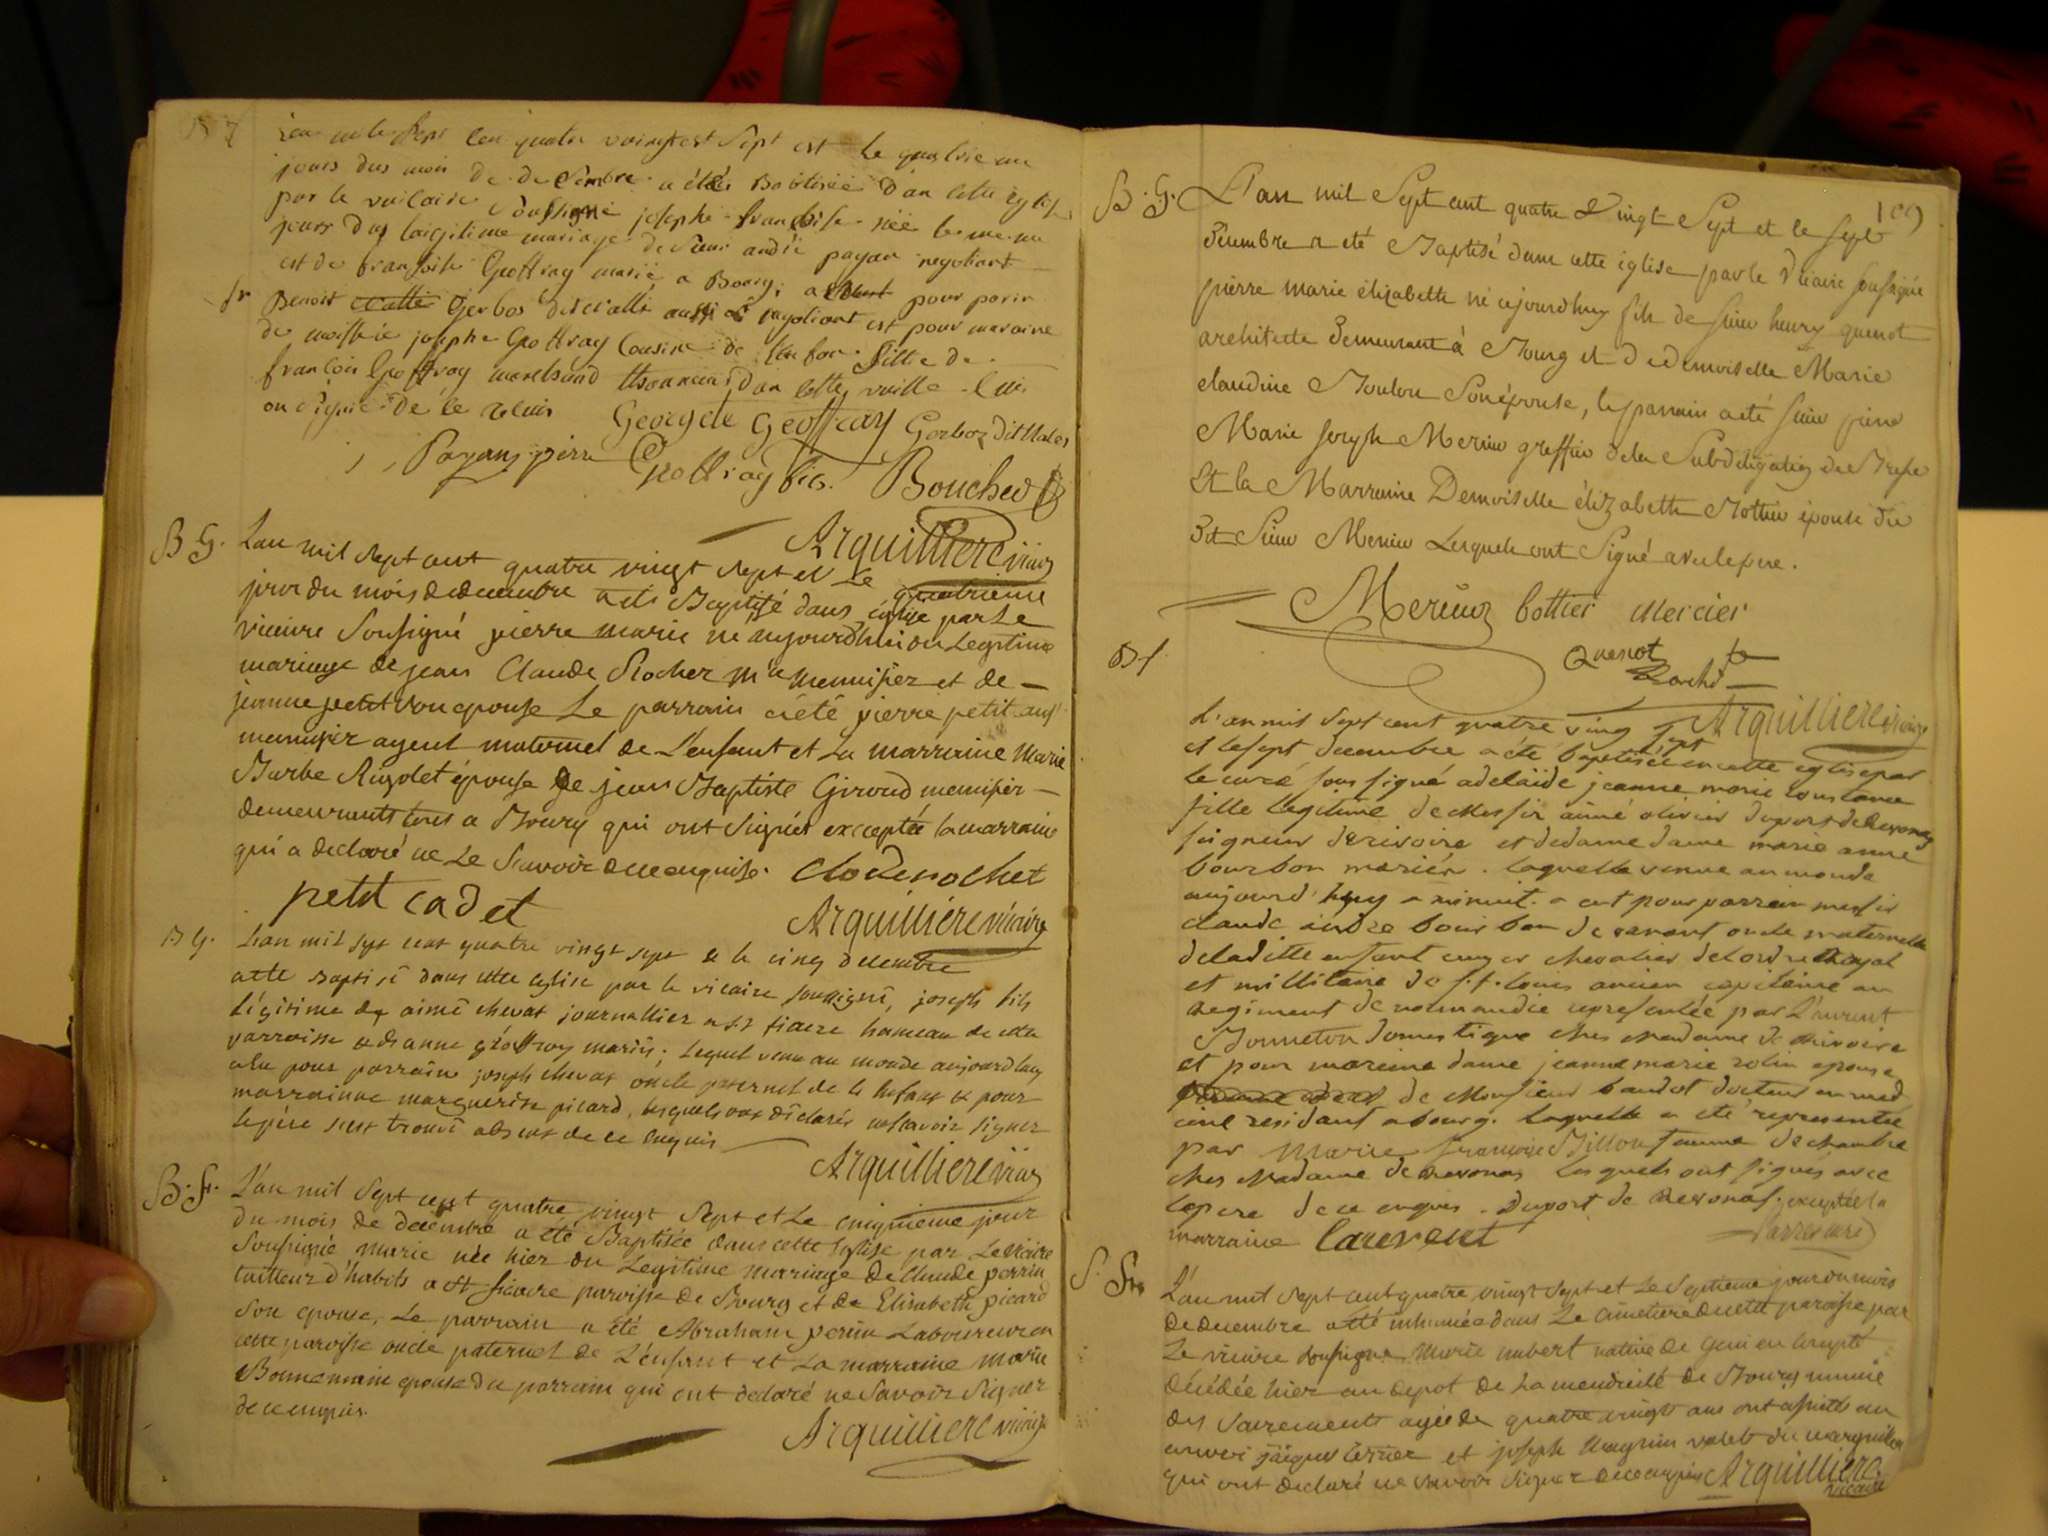 B f
L'an mil sept cen quatre vaingt est sept est le quatrie me
jours dus mois de desembre a étés Baötisée d'an cette eglise
par le vicaire sousigné josephe fransoise née le mesme
jours dus laigitime mariage de sieur andré payan negotiant
est de fransoise Geoffray marié a Bourg, a pour parin
sr Benoit Gerbos dit vallis aussi negotiant est pour maraine
de moiselle josephe Geoffray Cousine de fille de
françois Geoffray marchand d'an cette ville
on signé de le
George de Geoffray Gerboz dit
Payan père Geoffray fils. Bouched
Arquilliere vicaire
B G. L'an mil sept cent quatre vingt sept et le quatrieme
jour du mois de decembre a été Baptisé dans église par le
vicaire sousigné pierre marie né aujourdhui du Legitime
mariage de jean Claude Rochet Me Menuisier et de
jeanne petit son epouse Le parrain a été pierre petit aussi
menuisier ayeul maternel de L'enfant et La marraine Marie
Barbe Rigolet épouse de jean Baptiste Giroud menuisier
demeurants tous a Bourg qui ont signés exceptée la marraine
qui a declaré ne Le savoir de ce enquise. Clode rochet
petit cadet
Arquilliére vicaire
B G. L'an mil sept cent quatre vingt sept & le cinq decembre
a été baptisé dans cette eglise par le vicaire soussigné, joseph fils
légitime de aimé chevat journallier a st fiacre hameau de cette
parroisse & de anne géoffroy mariés; lequel venu au monde aujourdhuy
a eu pour parrain joseph chevat oncle paternel de l'enfant & pour
marrainne marguerite picard, lesquels ont déclarés ne savoir signer
le père s'est trouvé absent de ce enquis
Arquilliere vicaire
B. F. L'an mil sept cent quatre vingt sept et Le cinquieme jour
du mois de decembre a été Baptisée dans cette Eglise par Le vicaire
sousigné Marie née hier du Legitime Mariage de Claude perrin
tailleur d'habits a st fiacre paroisse de Bourg et de Elisabeth picard
son epouse, Le parrain a été Abraham perrin Laboureur en
cette paroisse oncle paternel de L'enfant et La marraine Marie
Bonnemain epouse du parrain qui ont declaré ne savoir signer
de ce enquis.
Arquilliere vicaire
109
B. G. L'an mil sept cent quatre vingt sept et le sept
Decembre a été Baptisé dans cette église par le vicaire soussigné
pierre marie élizabette né cejourdhuy fils de sieur henry quenot
architecte demeurant à Bourg et de demoiselle Marie
claudine Moulon son épouse, le parrain a été sieur pierre
Marie Joseph Mercier greffier de la subdélégation de Bresse
et la Marraine Demoiselle élizabette Bottier épouse du
dit sieur Mercier Lesquels ont signé avec le pere.
Mercier bottier Mercier
Quenot
Arquilliere vicaire
B f
L'an mil sept cent quatre ving sept
et le sept decembre a été baptisée en cette eglise par
le curé sous signé adelaïde jeanne marie constance
fille legitime de Messir aimé olivier duport de Revonas
seigneur de rivoire et de dame dame marie anne
bourbon mariés. laquelle venue au monde
aujourd'huy a minuit. a eut pour parrain messir
claude andre bourbon de oncle maternelle
de laditte enfant chevalier de l'ordre Royal
et millitaire de s.t. louis ancien capitaine au
regiment de normandie representée par Laurent
Bonneton domestique ches Madame de Rivoire
et pour mareine dame jeanne marie rolin epouse
de Monsieur baudot docteur en med
cine residant a bourg. laquelle a été representée
par Marie françoise Billon famme de chambre
ches Madame de Revonas lesquels ont signés avec
le pere de ce enquis. Duport de Revonas. exceptée la
marraine Laurent
S. Fe L'an mil sept cent quatre vingt sept et Le septieme jour du mois
de decembre a été inhumée dans Le Cimetiere de cette paroisse par
Le vicaire sousigné Marie imbert native de
décédée hier au depot de La mendicité de Bourg munie
des sacrements agée de quatre vingts ans ont assistés au
convoi jaques et joseph Magnin valets du marguiller
qui ont declaré ne savoir signer de ce enquis Arquilliere
vicaire